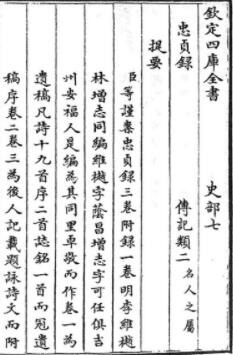 欽定四庫全書　史部七
忠貞錄　傳記類二名人之屬
提要
臣等謹案忠貞錄三卷附錄一卷明李維樾
林增志同編維樾字蔭昌增志字可任俱吉
州安福人是編為其同里卓敬而作卷一為
遺稿凡詩十九首序二首誌銘一首而冠遺
稿序卷二卷三為後人記載題詠詩文而附